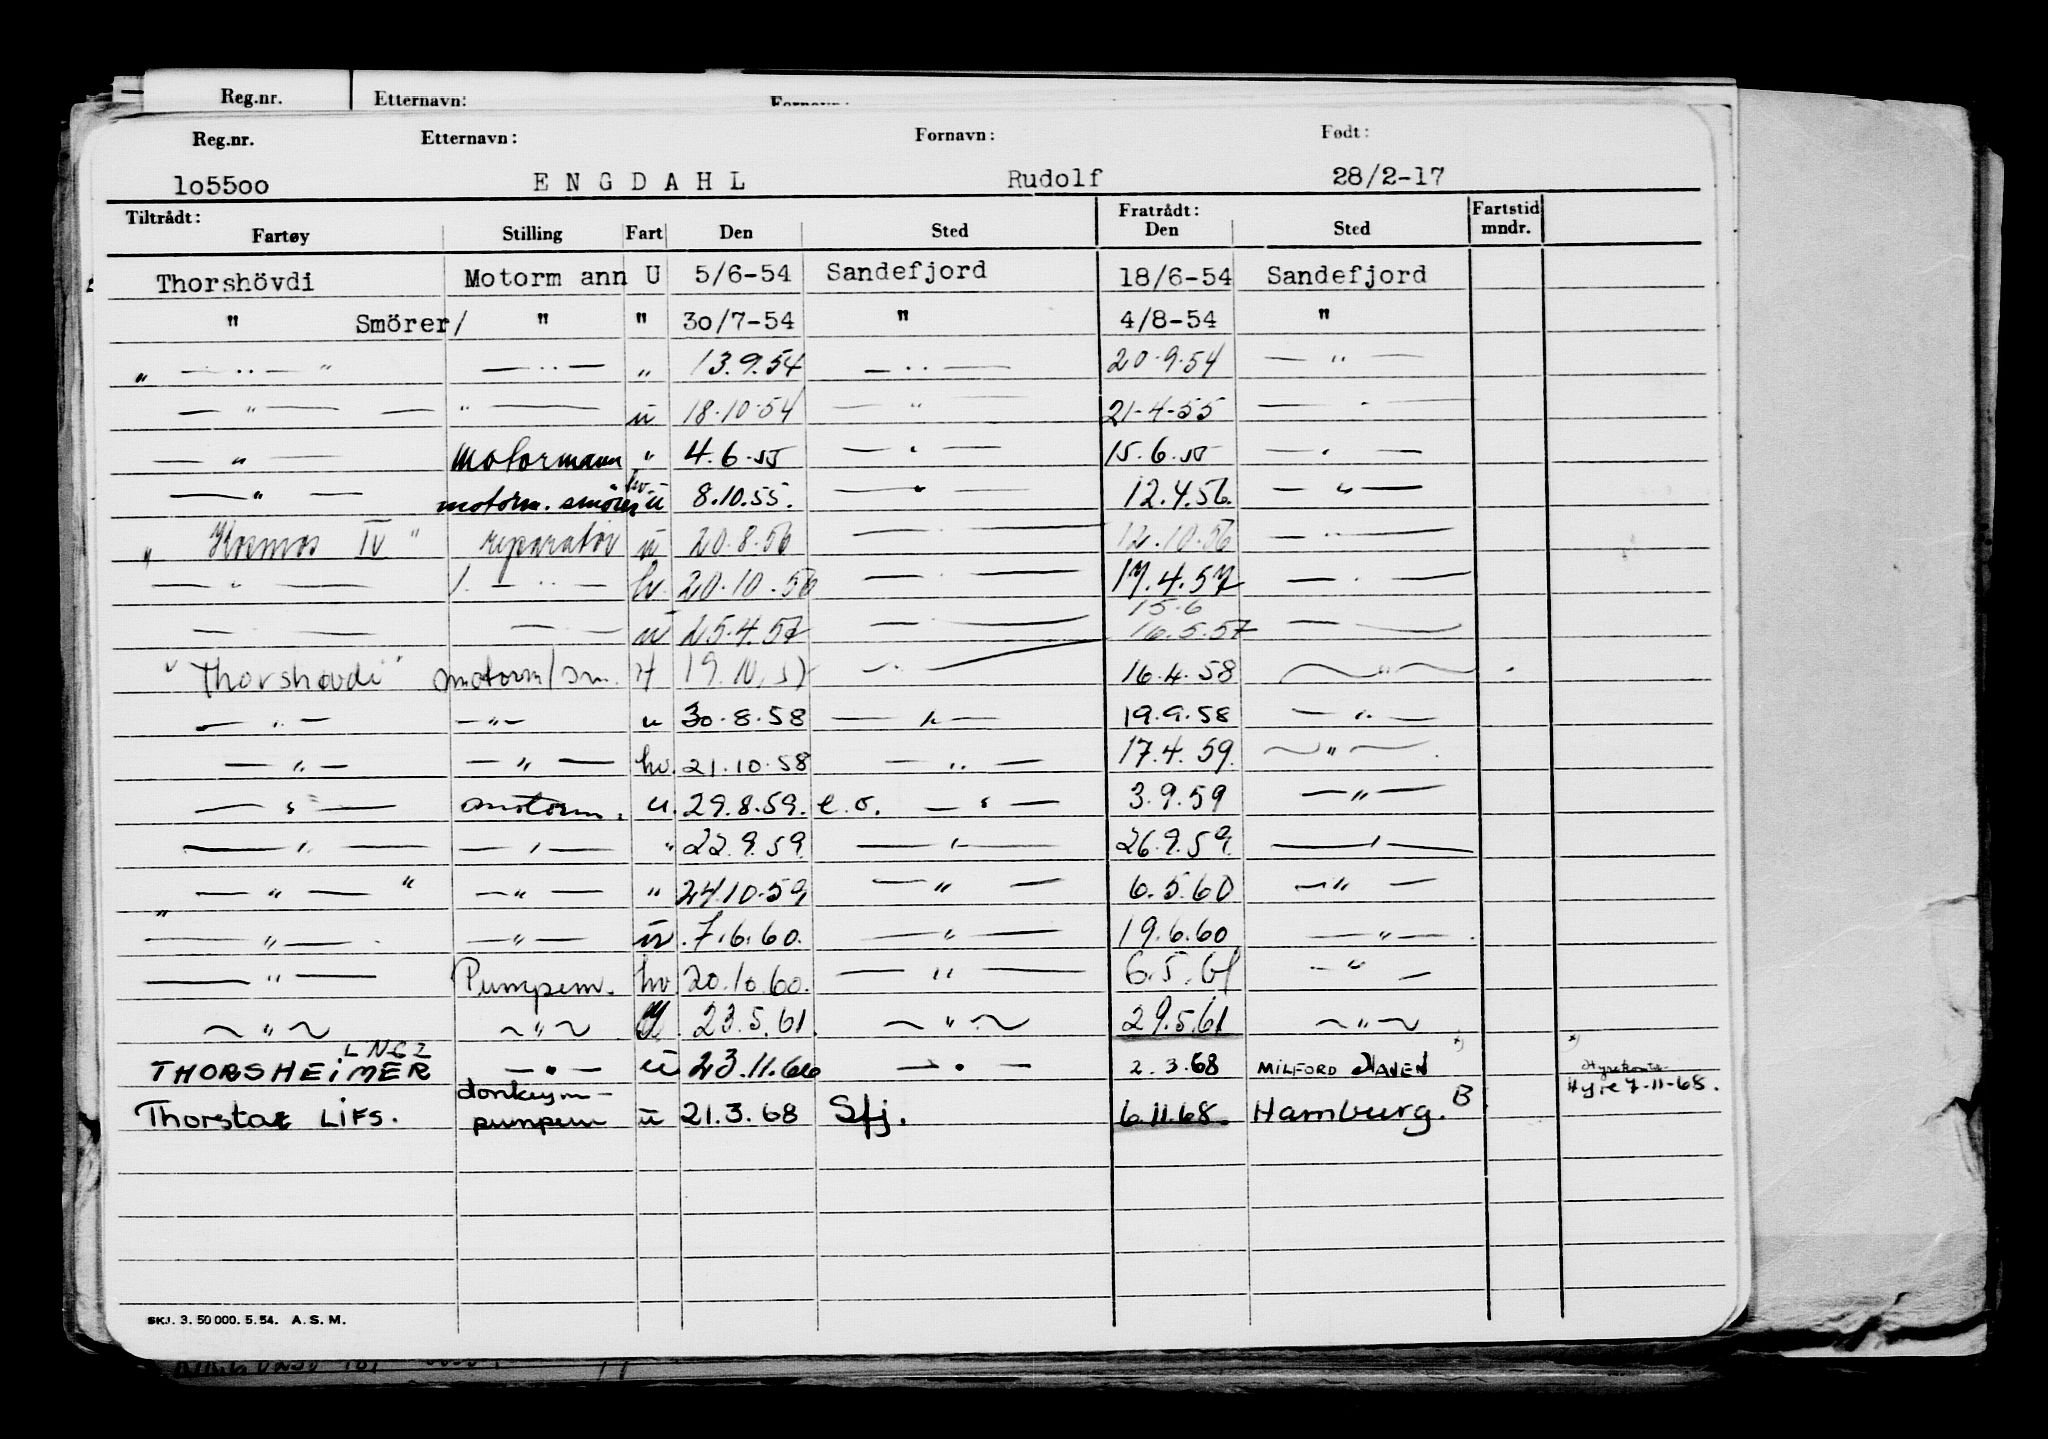 Reg.nr. Etternavn: Fornavn:
Reg.nr. Etternavn: Fornavn: Født:
105500 ENGDAHL Rudolf 28/2-17
Tiltrådt: Fratrådt: Fartstid
Fartøy Stilling Fart Den Sted Den Sted mndr.
Thorshövdi Motorm ann U 5/6-54 Sandefjord 18/6-54 Sandefjord
" Smörer/ " " 30/7-54 " 4/8-54 "
„ — „ — " — „ — „ 13.9.54 — „ — 20.9.54 — „ —
— „ — — „ — ü 18.10.54 — „ — 21-4-55 — „ —
— „ — Motormann „ 4.6.55 — „ — 15.6.55 — „ —
— „ — motorm. smörer hv ü 8.10.55. — „ — 12.4.56. — „ —
„ Kosmos IV " reparatör ü 20.8.56 — „ — 12.10.56 — „ —
— „ — 1. — „ — hv. 20.10.56 — „ — 17.4.57 — „ —
15.6
— „ — — „ — ü 25.4.57 — „ — 16.5.57 — „ —
" Thorshövdi " motorm/sm. H 19.10.57 — „ — 16.4.58 — „ —
— „ — — „ — u 30.8.58 — „ — 19.9.58 — „ —
— „ — — „ — hv. 21.10.58 — „ — 17.4.59. — „ —
— „ — motorm. u. 29.8.59. e.o. — „ — 3.9.59 — „ —
— „ — — „ — " 22.9.59. — „ — 26.9.59. — „ —
„ — „ — " — „ — „ 24.10.59 — „ — 6.5.60 — „ —
— „ — — „ — ü 7.6.60. — „ — 19.6.60 — „ —
— „ — Pumpem. hv 20.10.60. — „ — 6.5.61 — „ —
— „ — — „ — U. 23.5.61. — „ — 29.5.61 — „ —
THORSHEIMER LNGZ — „ — ü 23.11.66 — „ — 2.3.68 MILFORD HAVEN *) *)
Hyre 7-11-68.
Thorstar LIFS. donkeym-pumpem ü 21.3.68 Sfj. 6.11.68. Hamburg. B.
SKJ. 3. 50 000. 5. 54. A. S. M.